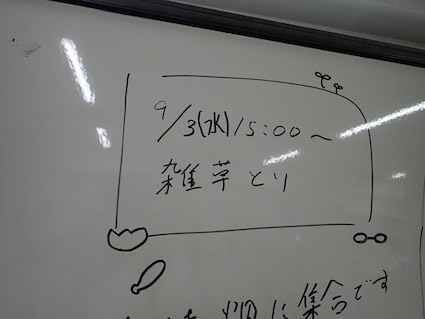 9/3(水)15:00～
雑草とり
に集合です